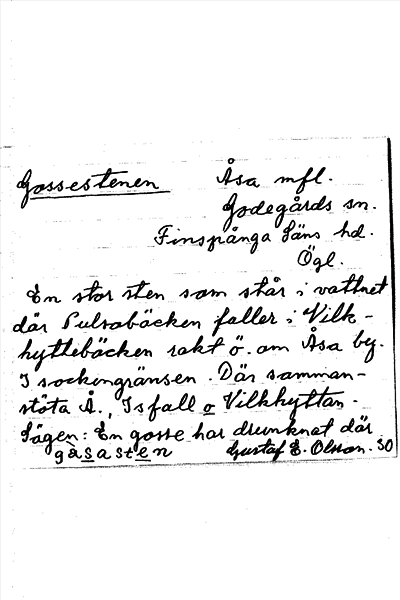 Gossestenen Åsa mfl.
Godegårds sn.
Finspånga läns hd.
Ögl.
En stor sten som står i vattnet
där Pulsabäcken faller i Vilk-
hyttebäcken rakt ö. om Åsa by.
I sockengränsen. Där samman-
stöta Å., Isfall o Vilkhyttan.
Sägen: En gosse har drunknat där.
gåsasten Gustaf E. Olsson. 30